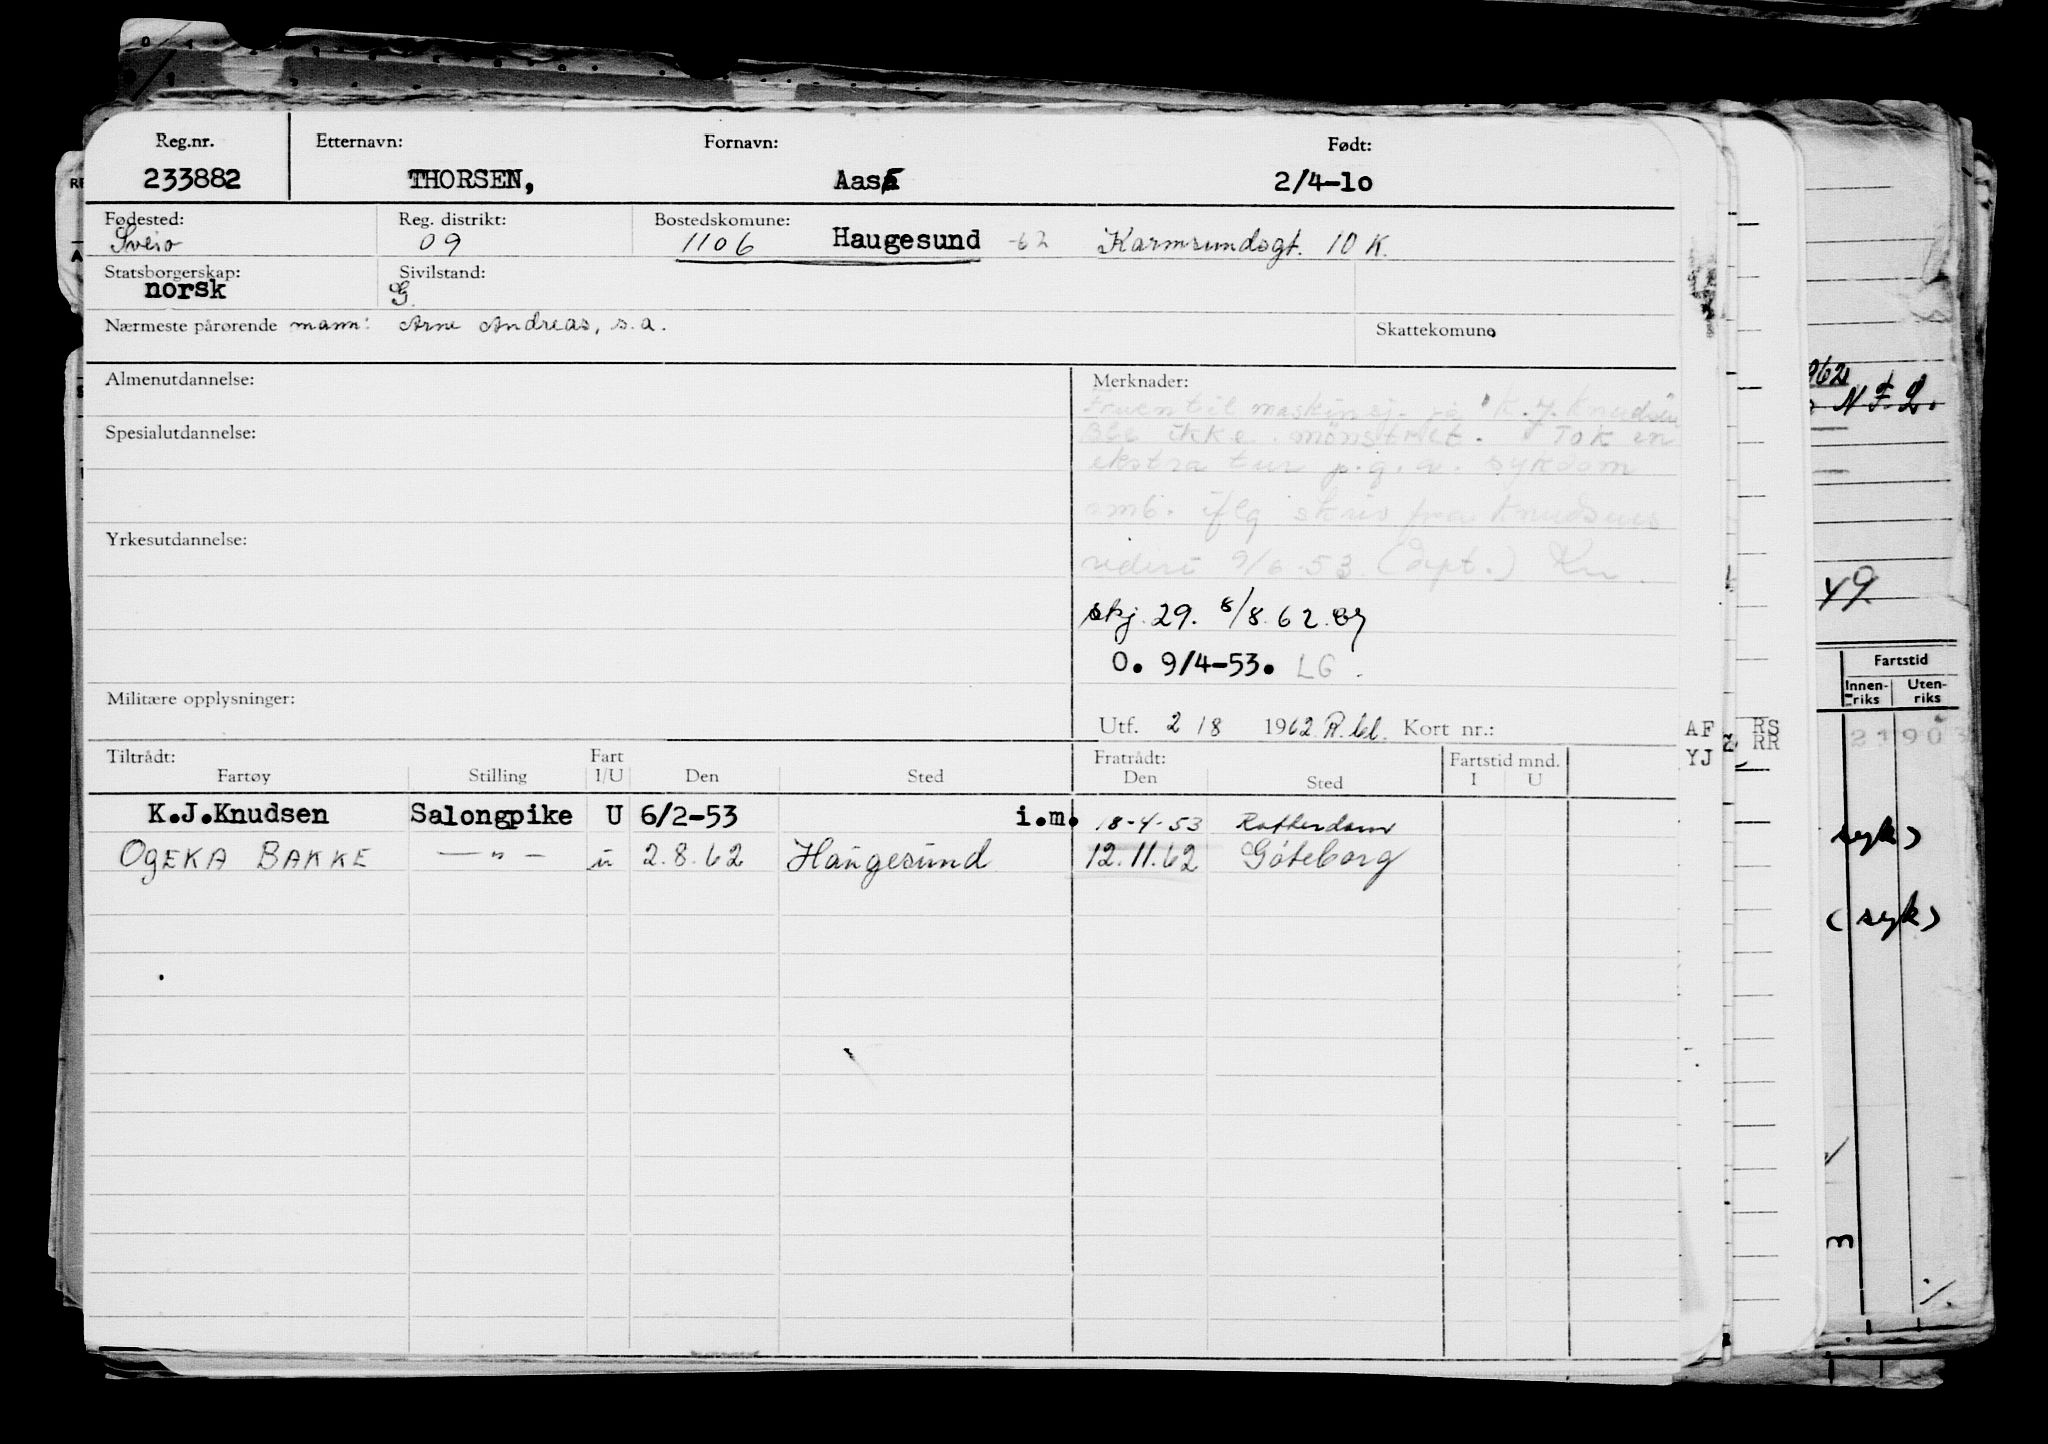 Reg.nr. Etternavn: Fornavn: Født:
233882 THORSEN, Aasa 2/4-10
Fødested: Reg. distrikt: Bostedskomune:
Sveio 09 1106 Haugesund -62 Karmsundsgt. 10 K.
Statsborgerskap: Sivilstand:
norsk G.
Nærmeste pårørende mann: Arne Andreas, s.a. Skattekomune
Almenutdannelse: Merknader:
Fruen til maskinsj. på "K.J. Knudsen
Spesialutdannelse: Ble ikke mønstret. Tok en
ekstra tur p.g.a. sykdom
omb. iflg skriv fra Knudsens
Yrkesutdannelse:
rederi 9/6-53 (dept.) Kn.
skj. 29. 8/8.62.
O. 9/4-53. LG.
Militære opplysninger:
Utf. 2/8 1962 R.bl. Kort nr.:
Tiltrådt: Fart Fratrådt: Fartstid mnd.
Fartøy Stilling I/U Den Sted Den Sted I U
K.J.Knudsen Salongpike U 6/2-53 i.m. 18-4-53 Rotterdam
OGEKA BAKKE —"— u 2.8.62 Haugesund 12.11.62 Göteborg
AF
YJ
RS
RR
N F. 2.
49
Fartstid
Innen-riks Uten-riks
syk)
(syk)